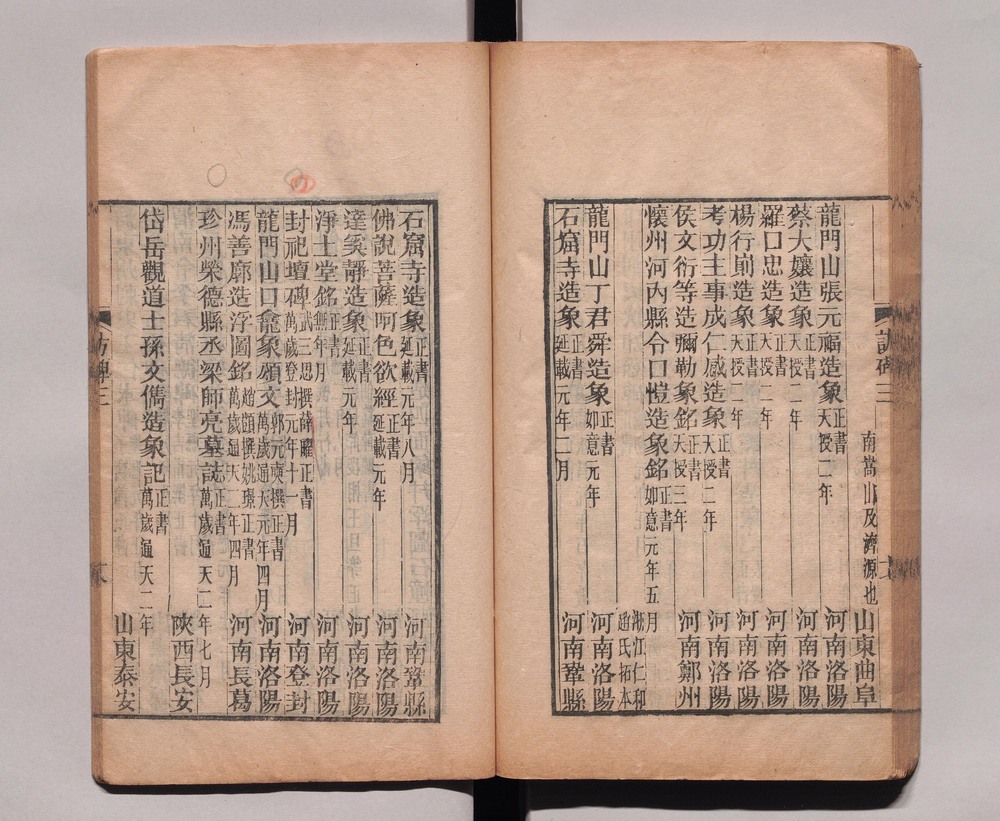 南嵩山及濟源也 山東曲阜
龍門山張元福造象 正書 天授二年 河南洛陽
蔡大孃造象 正書 天授二年 河南洛陽
羅口忠造象 正書 天授二年 河南洛陽
楊行剬造象 正書 天授二年 河南洛陽
考功主事成仁感造象 正書 天授二年 河南洛陽
侯文衍等造彌勒象銘 正書 天授三年 河南鄭州
懷州河內縣令口愷造象銘 正書 如意元年五月 浙江仁和趙氏拓本
龍門山丁君舜造象 正書 如意元年 河南洛陽
石窟寺造象 正書 延載元年二月 河南鞏縣
訪碑三
石窟寺造象 正書 延載元年八月 河南鞏縣
佛說菩薩呵色欲經 正書 延載元年 河南洛陽
達奚靜造象 正書 延載元年 河南洛陽
淨土堂銘 正書 無年月 河南洛陽
封祀壇碑 武三思撰薛曜正書 萬歲登封元年十一月 河南登封
龍門山口龕象願文 郭元奭撰正書 萬歲通天元年四月 河南洛陽
馮善廓造浮圖銘 趙頤撰姚璟正書 萬歲通天二年四月 河南長葛
珍州榮德縣丞梁師亮墓誌 正書 萬歲通天二年七月 陝西長安
岱岳觀道士孫文儁造象記 正書 萬歲通天二年 山東泰安
訪碑三